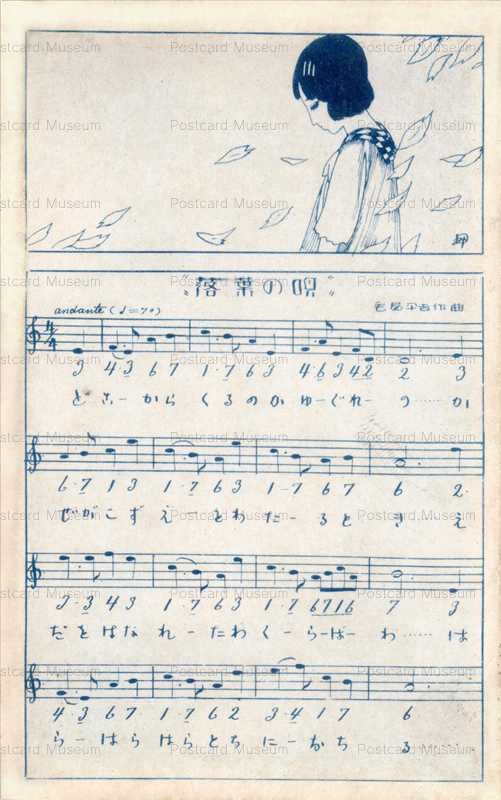 "落葉の唄"
andante (♩=70)
作曲
3 4·3 6 7 1·7 6 3 4·6 3 4 2 2 3
とさーから くるのか ゆーぐれー の……か
6·7 1 3 1·7 6 3 1-7 6 7 6 2
ぜがこずえーとわたーるとき え
3·3 4 3 1·7 6 3 1·7 6 7 1 6 7 3
だをはなれーたわくーらーばー わ……は
4·3 6 7 1·7 6 2 3·4 1 7 6
らーはらはらとちにーおち る……